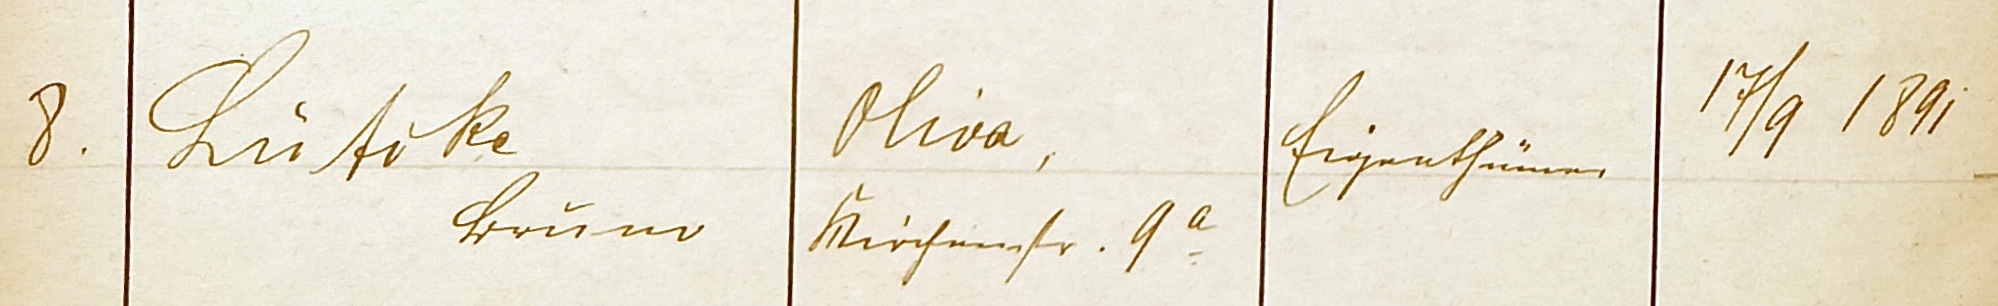 8. Lütcke Oliva, Eigenthümer 17/9 1891
Bruno Kirchenstr. 9a